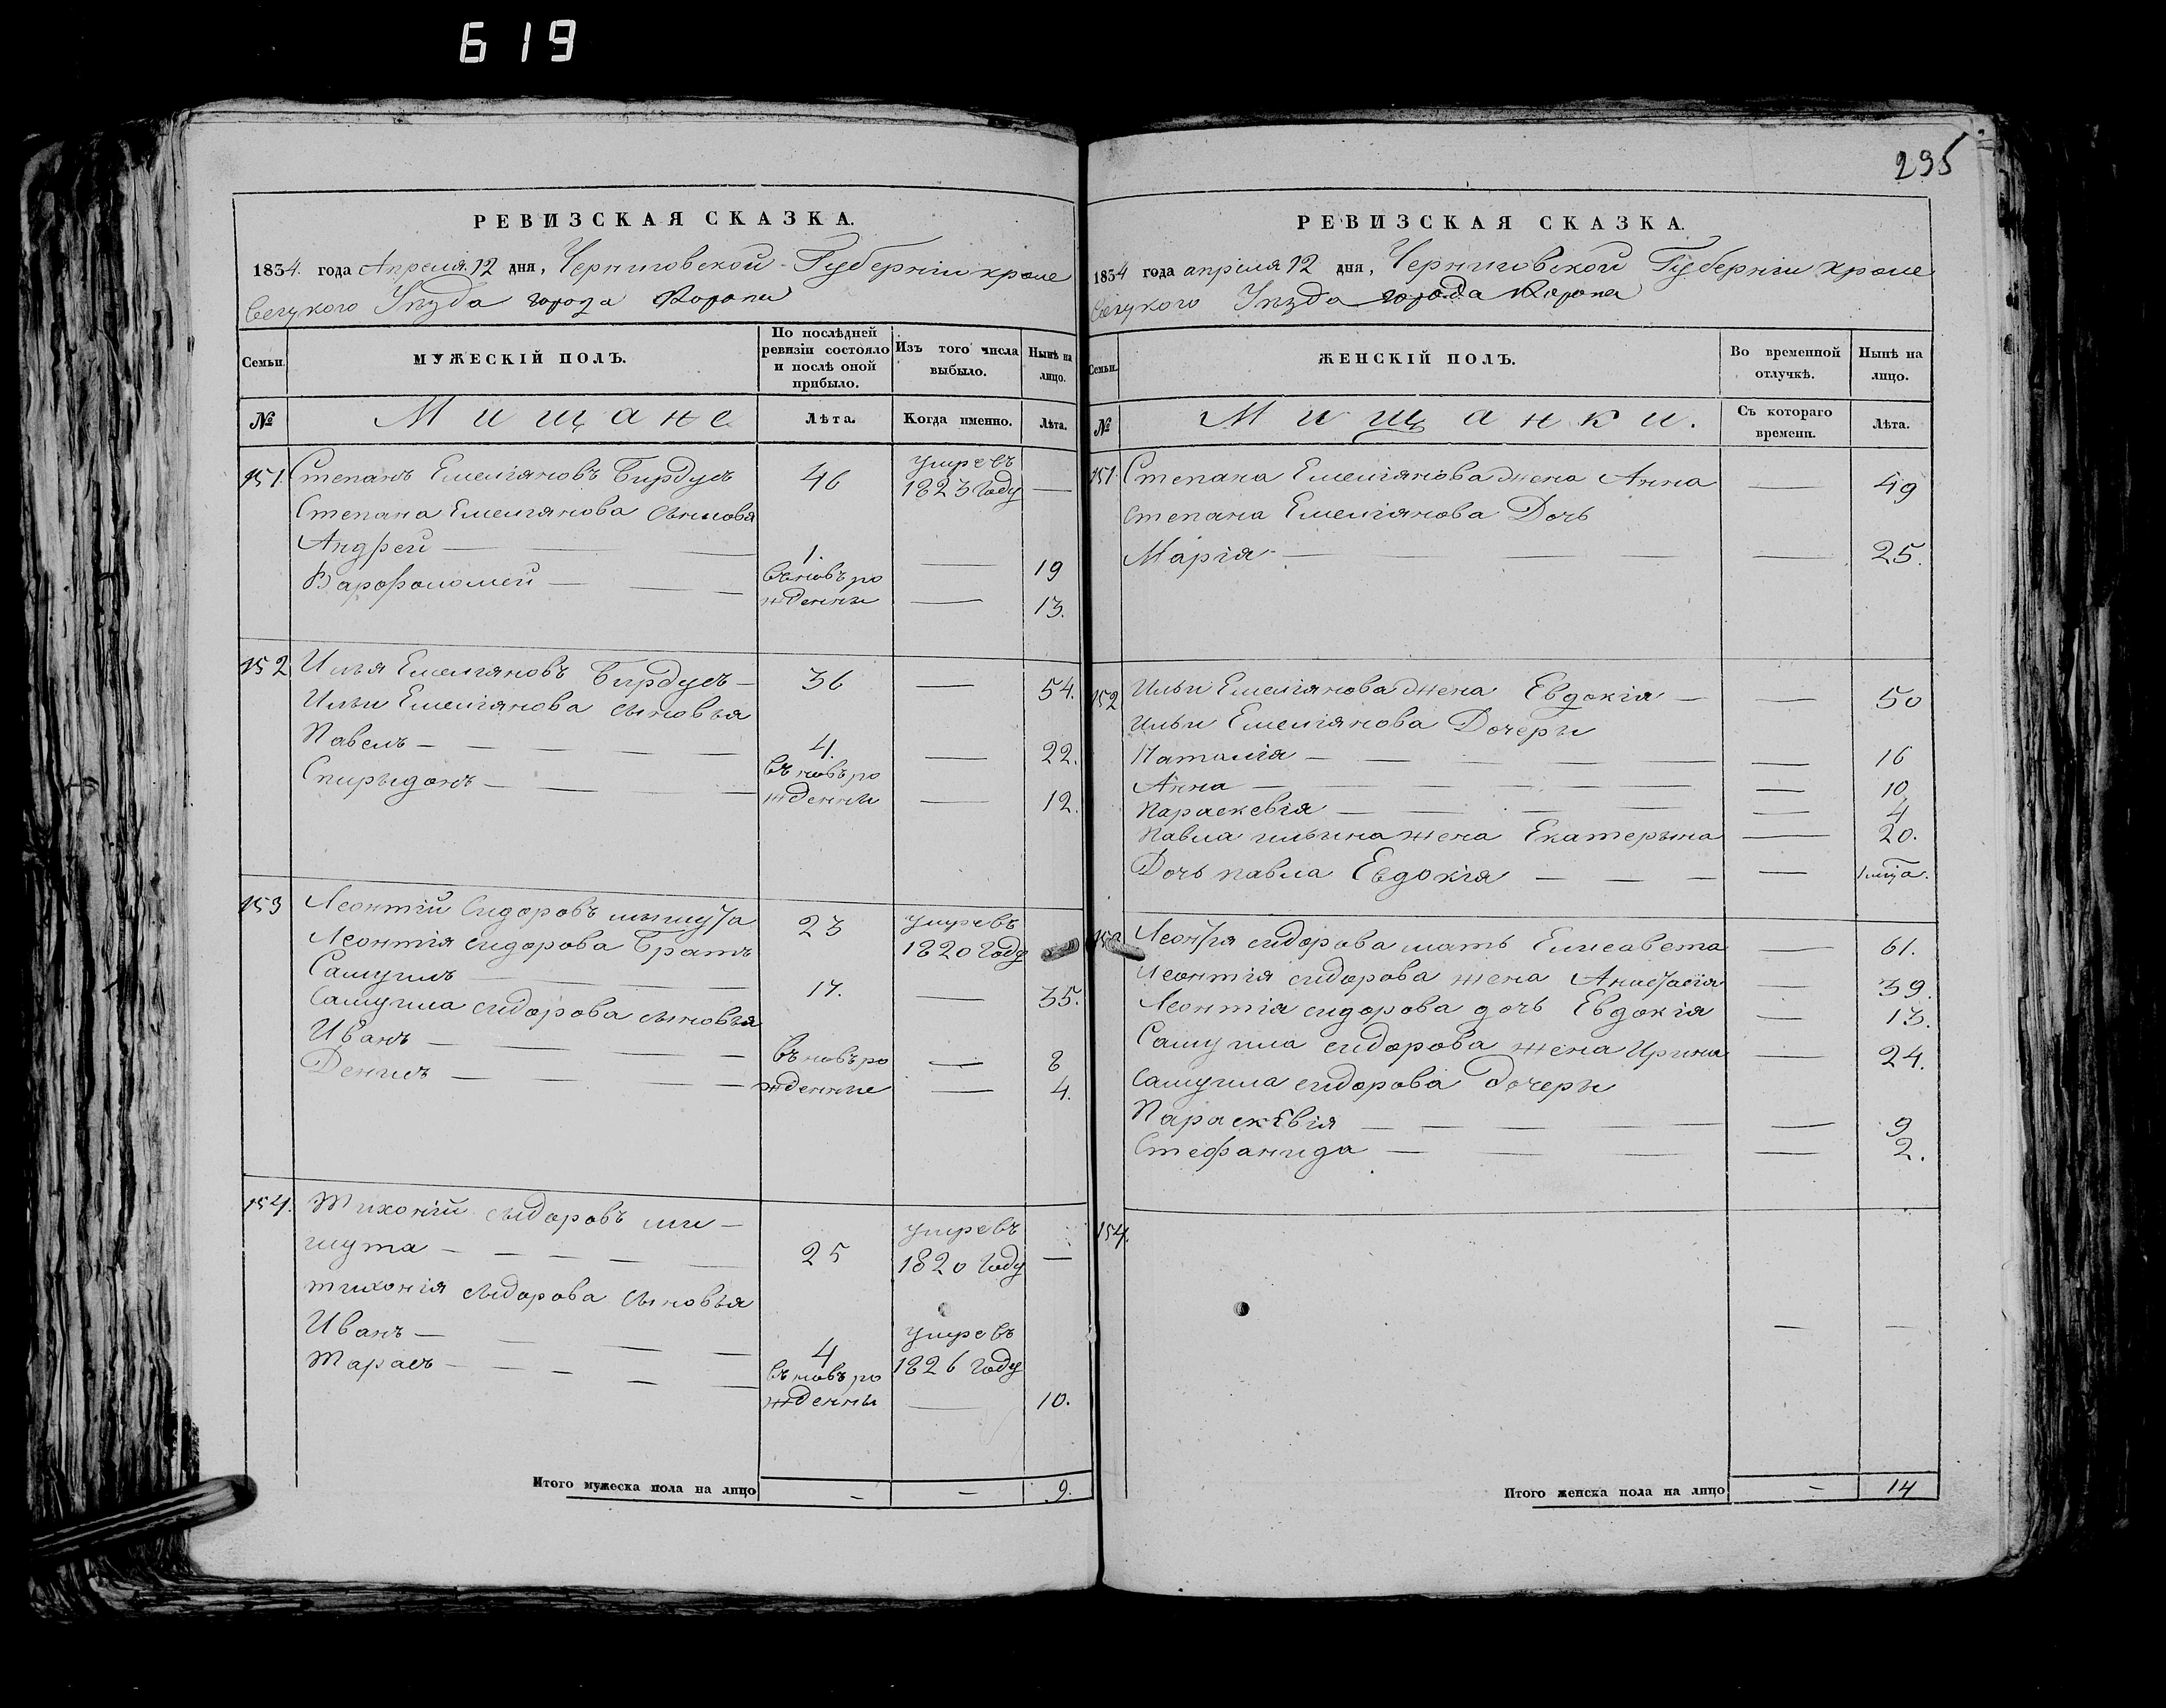 619
РЕВИЗСКАЯ СКАЗКА.
1834. года Апреля 12 дня, Черниговской Губерніи кроле
вецкого Уѣзда города Коропа
Семьи.
МУЖЕСКІЙ ПОЛЪ.
По послѣдней ревизіи состояло и послѣ оной прибыло.
Изъ того числа выбыло.
Нынѣ на лицо.
№
Мищане
Лѣта.
Когда именно.
Лѣта.
151. Степанъ Емелiяновъ Бирдусъ 46 умре въ 1823 году —
Степана Емелiянова сыновя
Андрей — 1. — 19
Варфоломей — въ новъ рожденны — 13.
152 Илья Емелiяновъ Бирдусъ — 36 — 54.
Ильи Емелiянова сыновья
Павелъ — 4. — 22.
Спирыдонъ — въ новъ рожденны — 12.
153 Леонтiй Сидоровъ 23 умре въ 1820 году
Леонтiя сидорова Братъ
Самуилъ — 17. — 35.
Самуила сидорова сыновья
Иванъ — въ новъ ро — 8
Денисъ — жденные — 4.
154. Тихонiй сыдоровъ ми-
шута — 25 умре въ 1820 году —
тихонiя сыдорова сыновья
Иванъ — 4 умре въ 1826 году
Тарасъ — въ новъ рожденны — 10.
Итого мужеска пола на лицо — — 9.
295
РЕВИЗСКАЯ СКАЗКА.
1834 года апреля 12 дня, Черниговской Губерніи кроле
вецкого Уѣзда города Коропа
Семьи.
ЖЕНСКІЙ ПОЛЪ.
Во временной отлучкѣ.
Нынѣ на лицо.
№
Мищанки.
Съ котораго времени.
Лѣта.
151. Степана Емелiянова жена Анна — 49
Степана Емелiянова Дочь
Марiя — 25.
152 Ильи Емелiянова жена Евдокiя — 50
Ильи Емелiянова Дочеры
Наталiя — 16
Анна — 10
Параскевiя — 4
Павла ильина жена Екатерына — 20.
Дочь павла Евдокiя —
153 Леонтiя сидорова мать Елисавета — 61.
Леонтiя сидорова жена Анастасiя — 39.
Леонтiя сидорова дочь Евдокiя — 13.
Самуила сидорова жена Ирина — 24.
Самуила сидорова дочеры
Параскевiя — 9
Стефанида — 2.
154. — —
Итого женска пола на лицо — 14